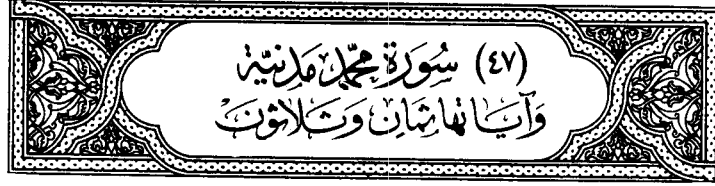 (٤٧) سُورَةِ مُحَمَّدٍ مَدَنِيَّة
وَآيَاتهَا ثَمَانٍ وَثَلَاثُونَ